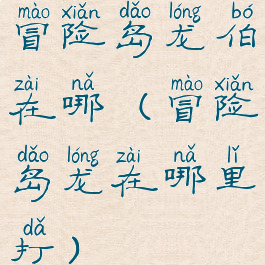 mào xiǎn dǎo lóng bó
冒险岛龙伯
zài nǎ mào xiǎn
在哪(冒险
dǎo lóng zài nǎ lǐ
岛龙在哪里
dǎ
打)